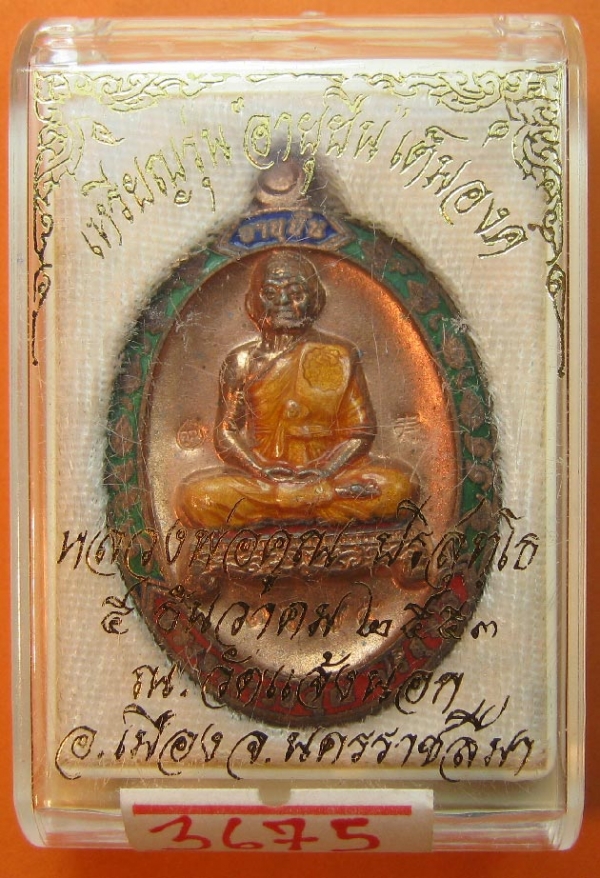 เหรียญรุ่น "อายุยืน" เต็มองค์
อายุยืน
หลวงพ่อคูณ ปริสุทฺโธ
๕ ธันวาคม ๒๕๕๓
ณ. วัดแจ้งนอก
อ.เมือง จ.นครราชสีมา
3675